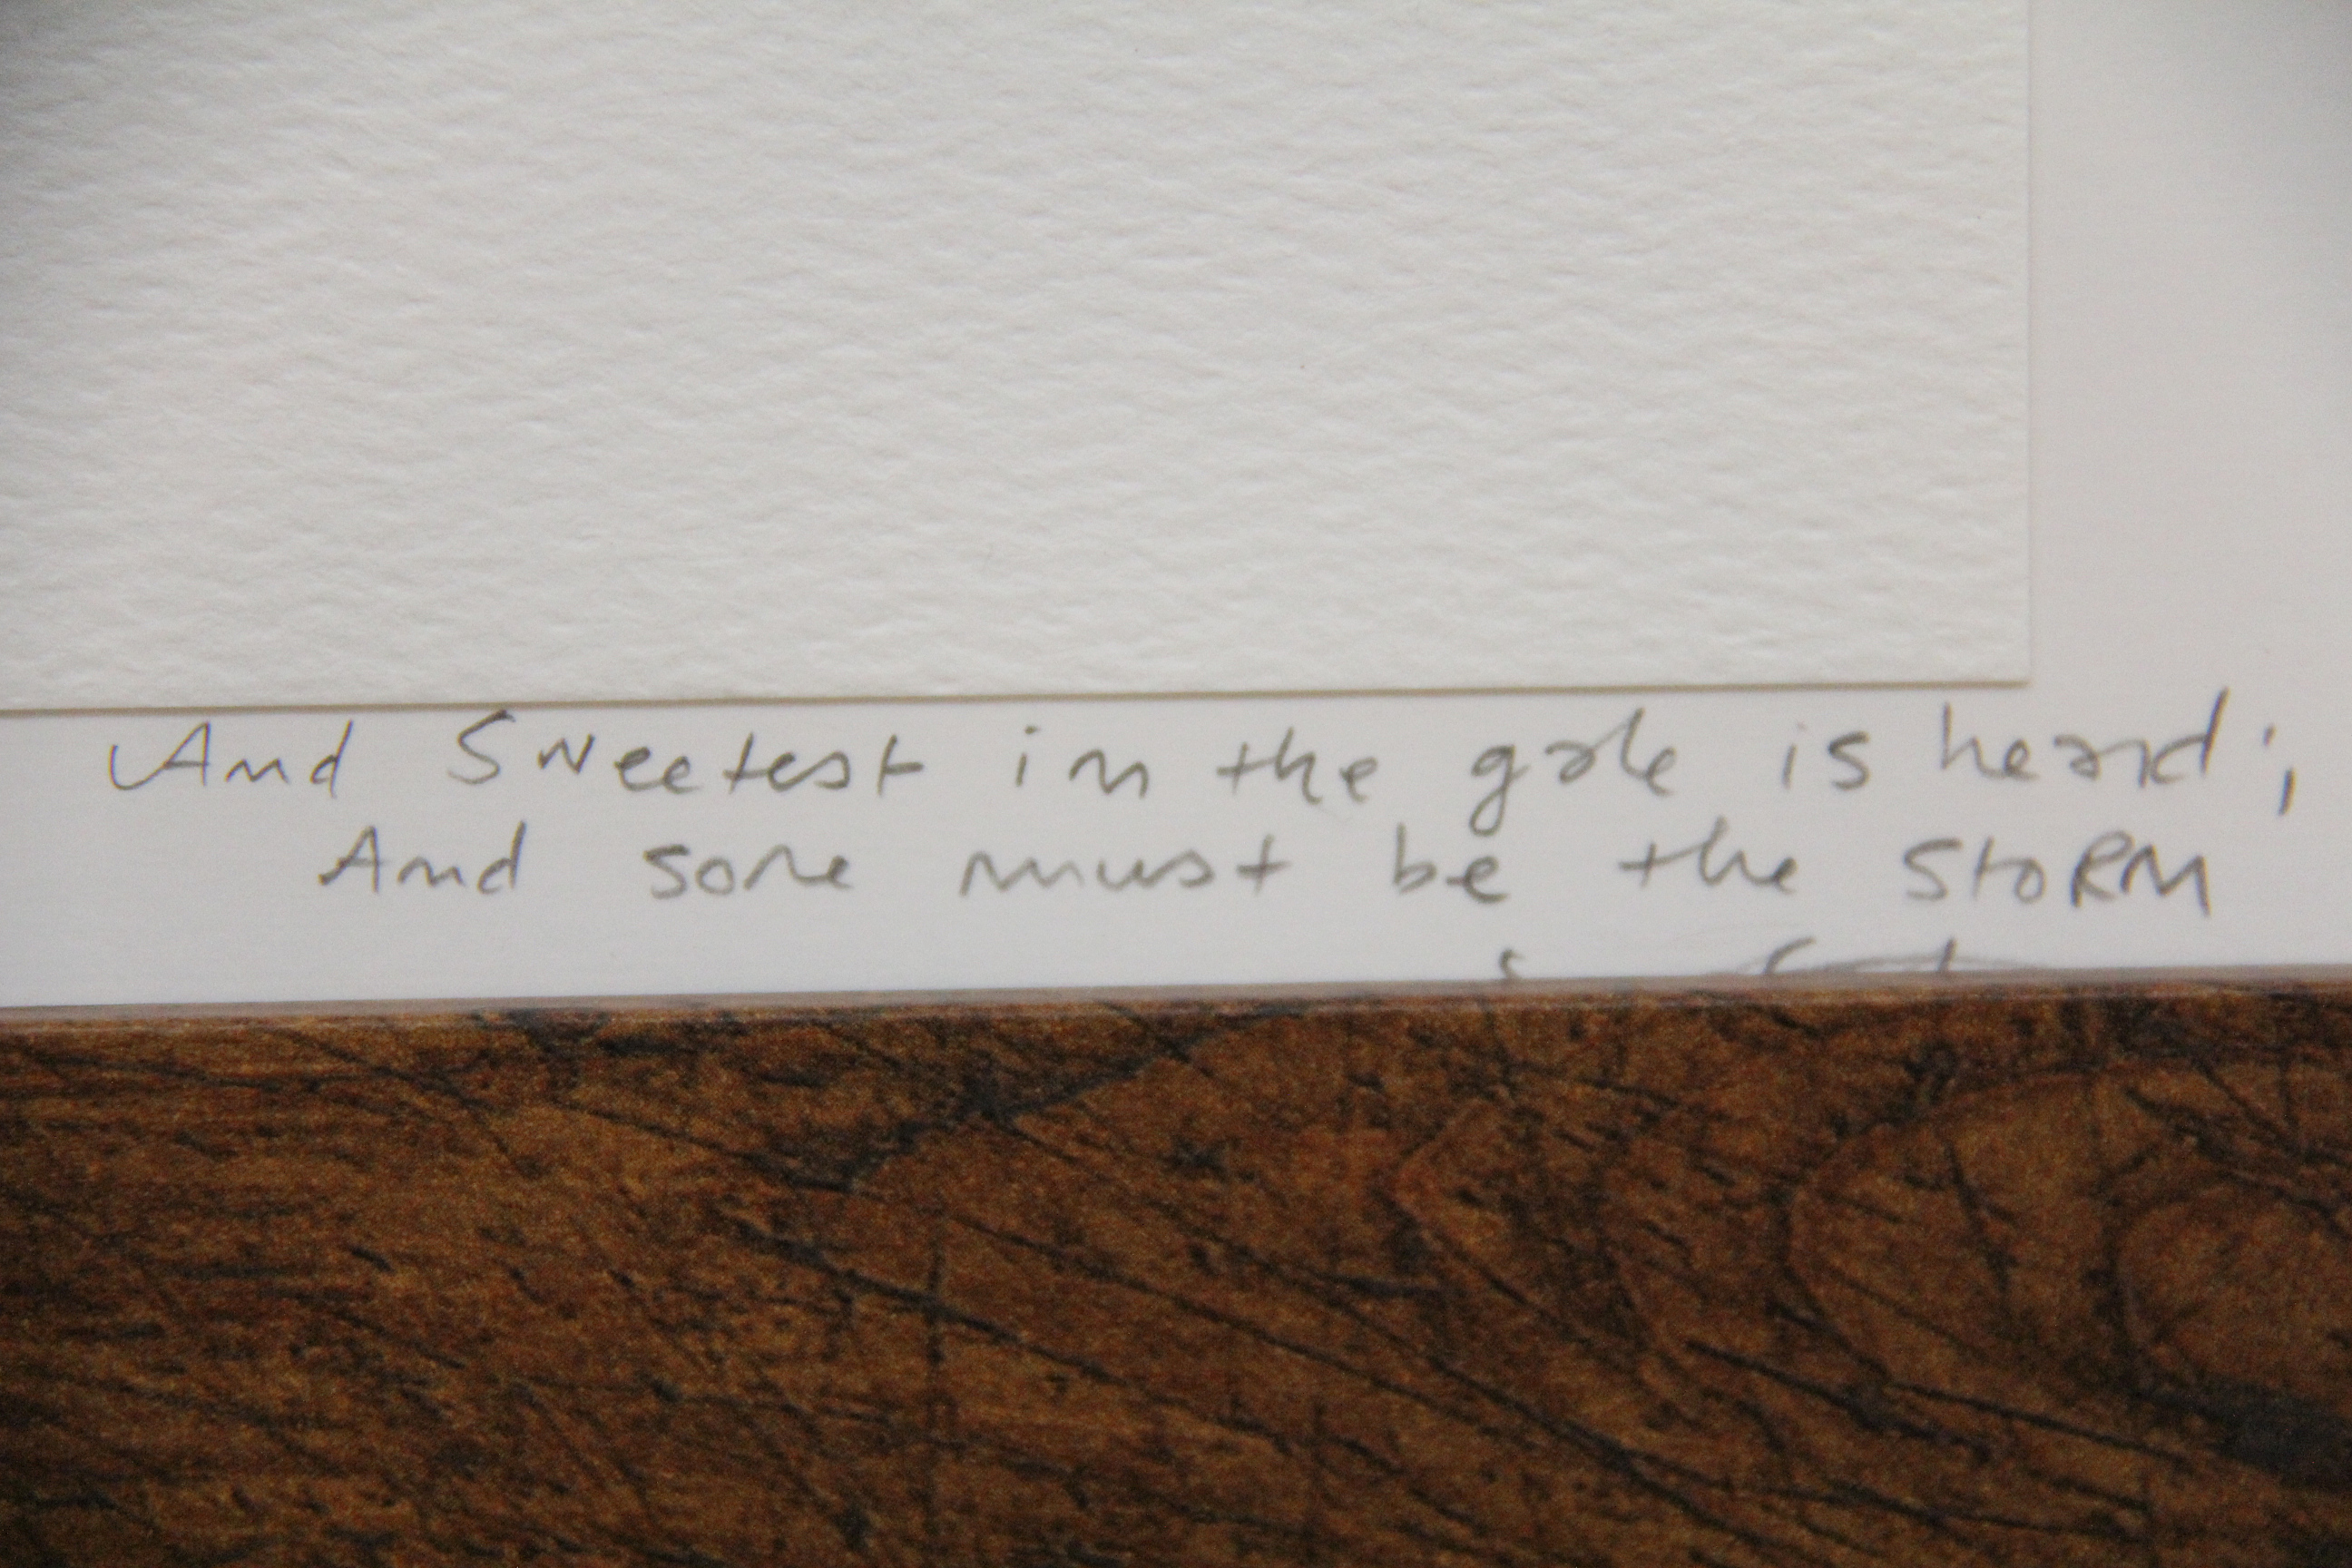 And Sweetest in the gale is heard;
And sore must be the StoRM